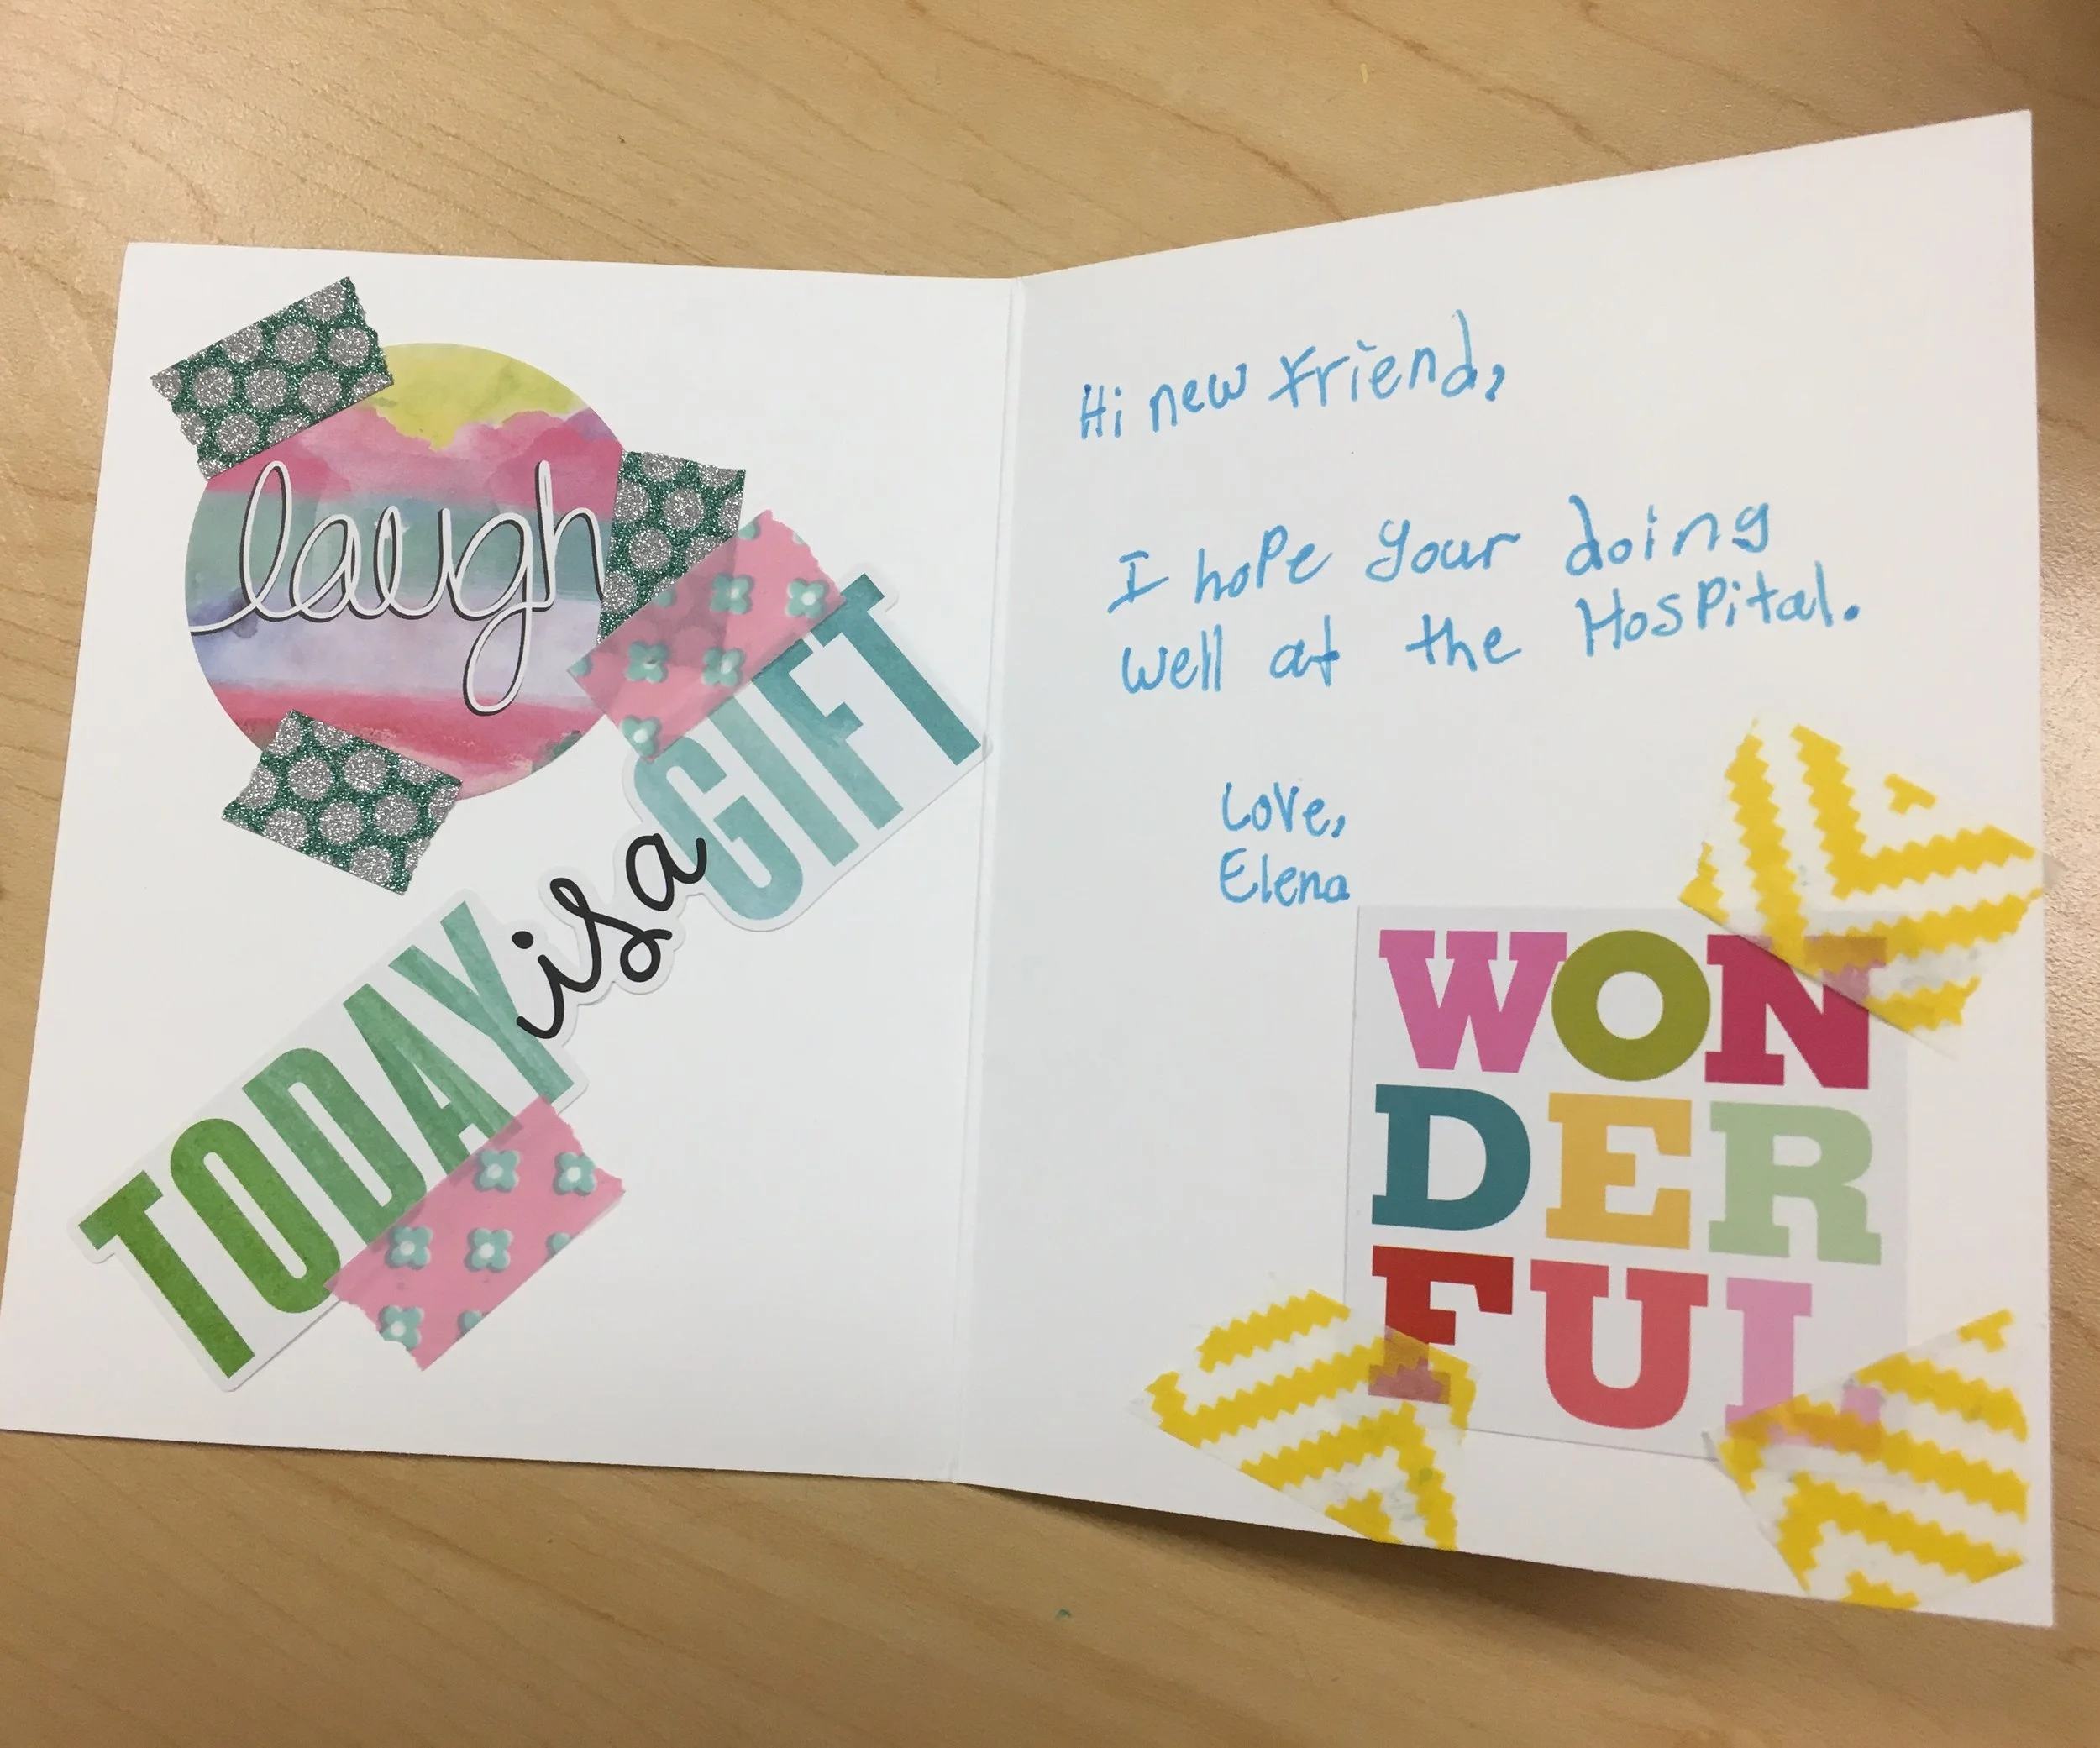 laugh
TODAY is a GIFT
Hi new friend,
I hope your doing
well at the Hospital.
Love,
Elena
WON
DER
FUL